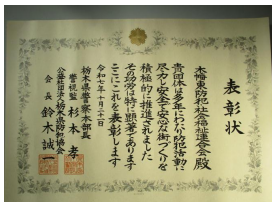 表彰状
木幡東防犯社会福祉連合会殿
貴団体は多年にわたり防犯活動に
尽力し安全で安心な街づくりを
積極的に推進されました
その功労は特に顕著であります
ここにこれを表彰します
令和七年十月二十一日
栃木県警察本部長
警視監 杉本 孝
公益社団法人栃木県防犯協会
会長 鈴木誠一